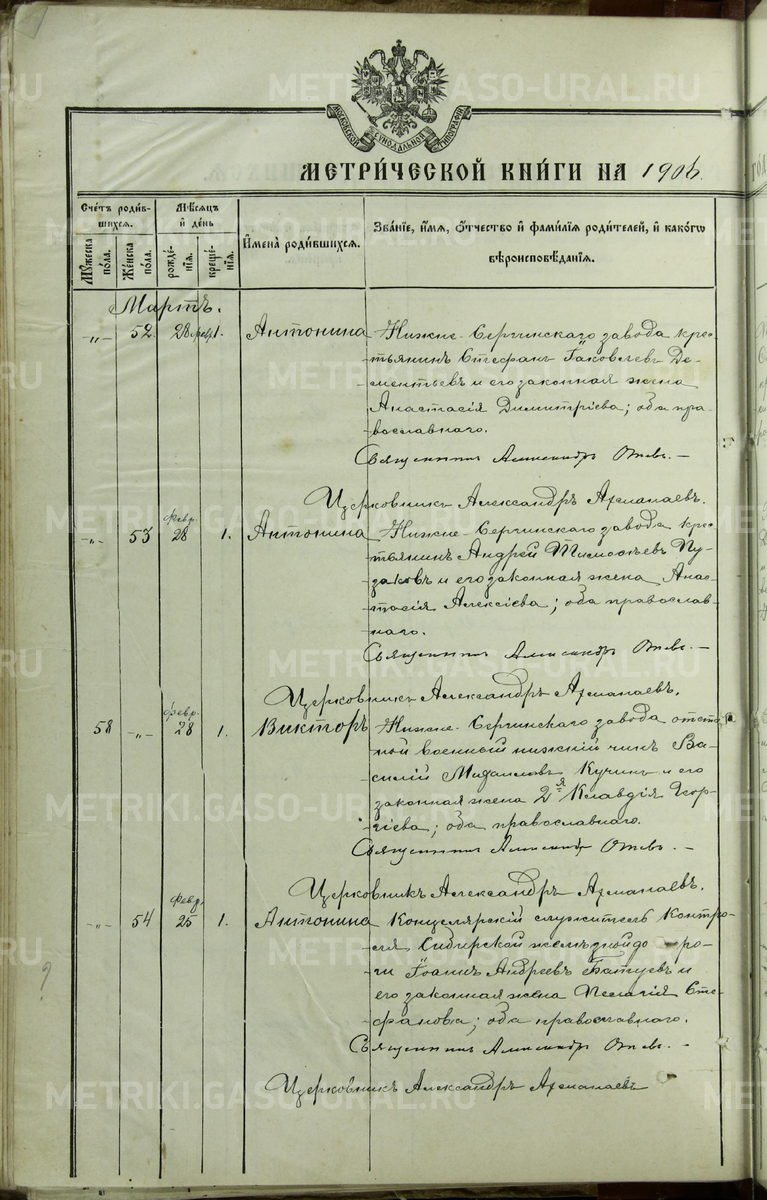 МОСКОВСКОЙ СѴНОДАЛЬНОЙ ТИПОГРАФІИ
МЕТРИ́ЧЕСКОЙ КНИ́ГИ НА 1906.
Сче́тъ роди́в-
шихся.
Му́жеска по́ла.
Же́нска по́ла.
Мѣ́сяцъ и де́нь
рожде́нїя.
креще́нїя.
Имена̀ роди́вшихся.
Зва́нїе, и́мя, о́тчество и фами́лїя роди́телей, и како́гѡ
вѣроисповѣ́данїя.
Мартъ.
-„- 52. 28 февр. 1. Антонина Нижне-Сергинскаго завода кре-
стьянинъ Стефанъ Іаковлевъ Де-
ментьевъ и его законная жена
Анастасія Димитріева; оба пра-
вославнаго.
Священникъ Александръ
Церковникъ Александръ
-„- 53 февр. 28 1. Антонина Нижне-Сергинскаго завода кре-
стьянинъ Андрей Тимофѣевъ Пу-
заковъ и его законная жена Анас-
тасія Алексіева; оба православ-
наго.
Священникъ Александръ
Церковникъ Александръ
58 -„- февр. 28 1. Викторъ Нижне-Сергинскаго завода отста-
ной военный нижній чинъ Ва-
силій Михаиловъ Кучинъ и его
законная жена 2я Клавдія Геор-
гіева; оба православнаго.
Священникъ Александръ
Церковникъ Александръ
-„- 54 февр. 25 1. Антонина Концелярскій служитель Контро-
ля Сибирской желѣзной до-ро-
ги Іоаннъ Андреевъ Батуевъ и
его законная жена Пелагія Сте-
фанова; оба православнаго.
Священникъ Александръ
Церковникъ Александръ
METRIKI.GASO-URAL.RU